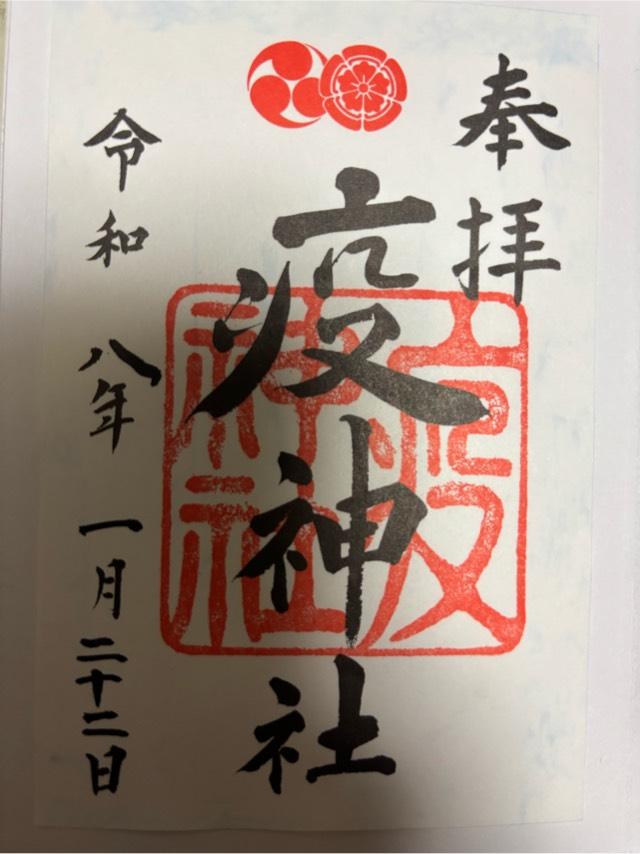 奉拝
疫神社
疫神社
令和八年一月二十二日